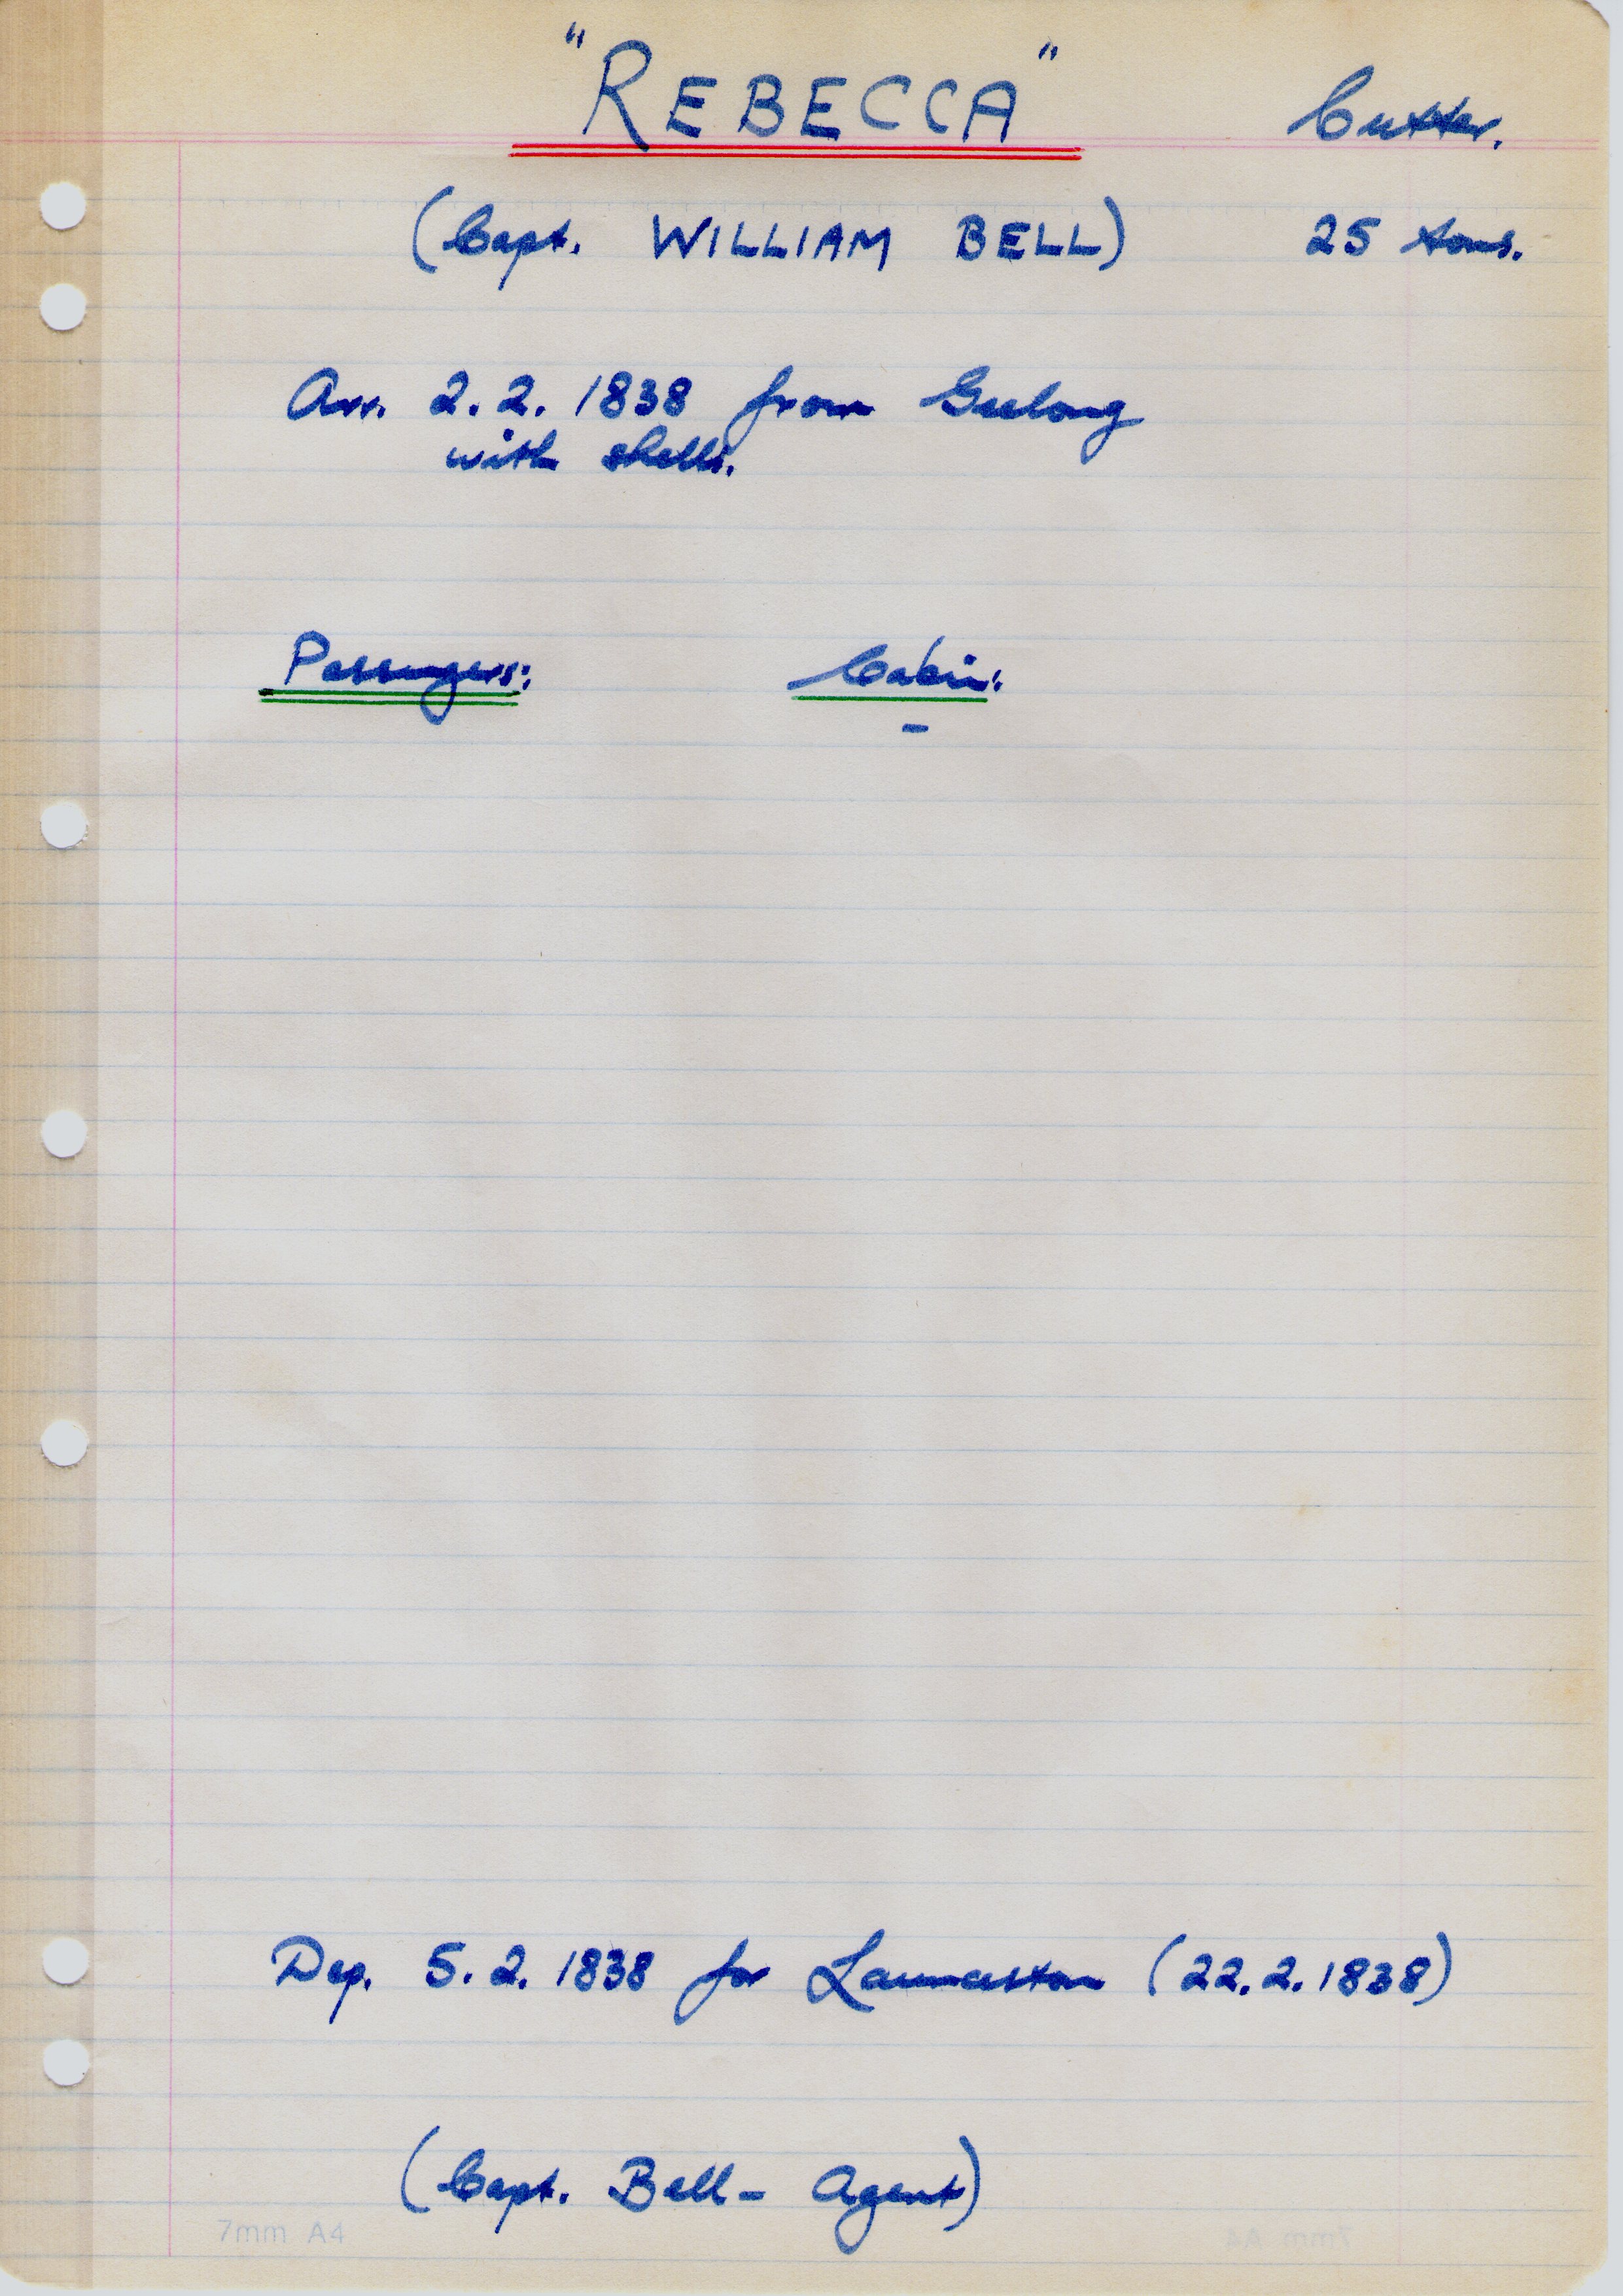 "REBECCA" Cutter.
(Capt. WILLIAM BELL) 25 tons.
Arr. 2.2.1838 from Geelong
with shells.
Passengers: Cabin:
-
Dep. 5.2.1838 for Launceston (22.2.1838)
(Capt. Bell - Agent)
7mm A4